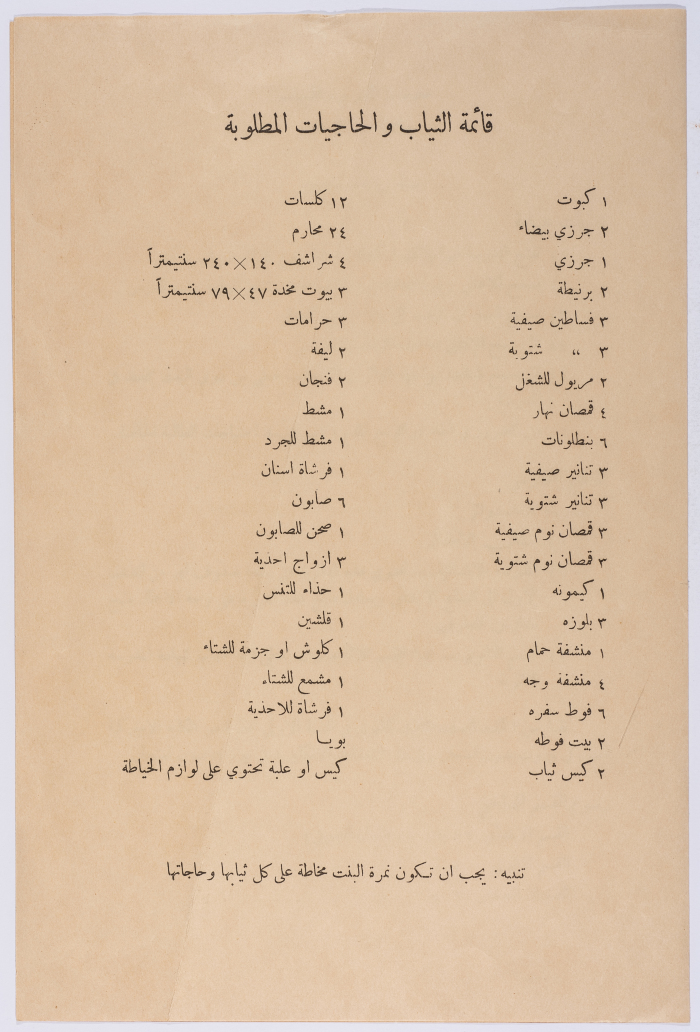 قائمة الثياب و الحاجيات المطلوبة
١ كبوت
٢ جرزي بيضاء
١ جرزي
٢ برنيطة
٣ فساطين صيفية
٣ ،، شتوية
٢ مريول للشغل
٤ قمصان نهار
٦ بنطلونات
٣ تنانير صيفية
٣ تنانير شتوية
٣ قمصان نوم صيفية
٣ قمصان نوم شتوية
١ كيمونه
٣ بلوزه
١ منشفة حمام
٤ منشفة وجه
٦ فوط سفره
٢ بيت فوطه
٢ كيس ثياب
١٢ كلسات
٢٤ محارم
٤ شراشف ١٤٠×٢٤٠ سنتيمتراً
٣ بيوت مخدة ٤٧×٧٩ سنتيمتراً
٣ حرامات
٢ ليفة
٢ فنجان
١ مشط
١ مشط للجرد
١ فرشاة اسنان
٦ صابون
١ صحن للصابون
٣ ازواج احذية
١ حذاء للتنس
١ قلشين
١ كلوش او جزمة للشتاء
١ مشمع للشتاء
١ فرشاة للاحذية
بويا
كيس او علبة تحتوي على لوازم الخياطة
تنبيه: يجب ان تكون نمرة البنت مخاطة على كل ثيابها وحاجاتها